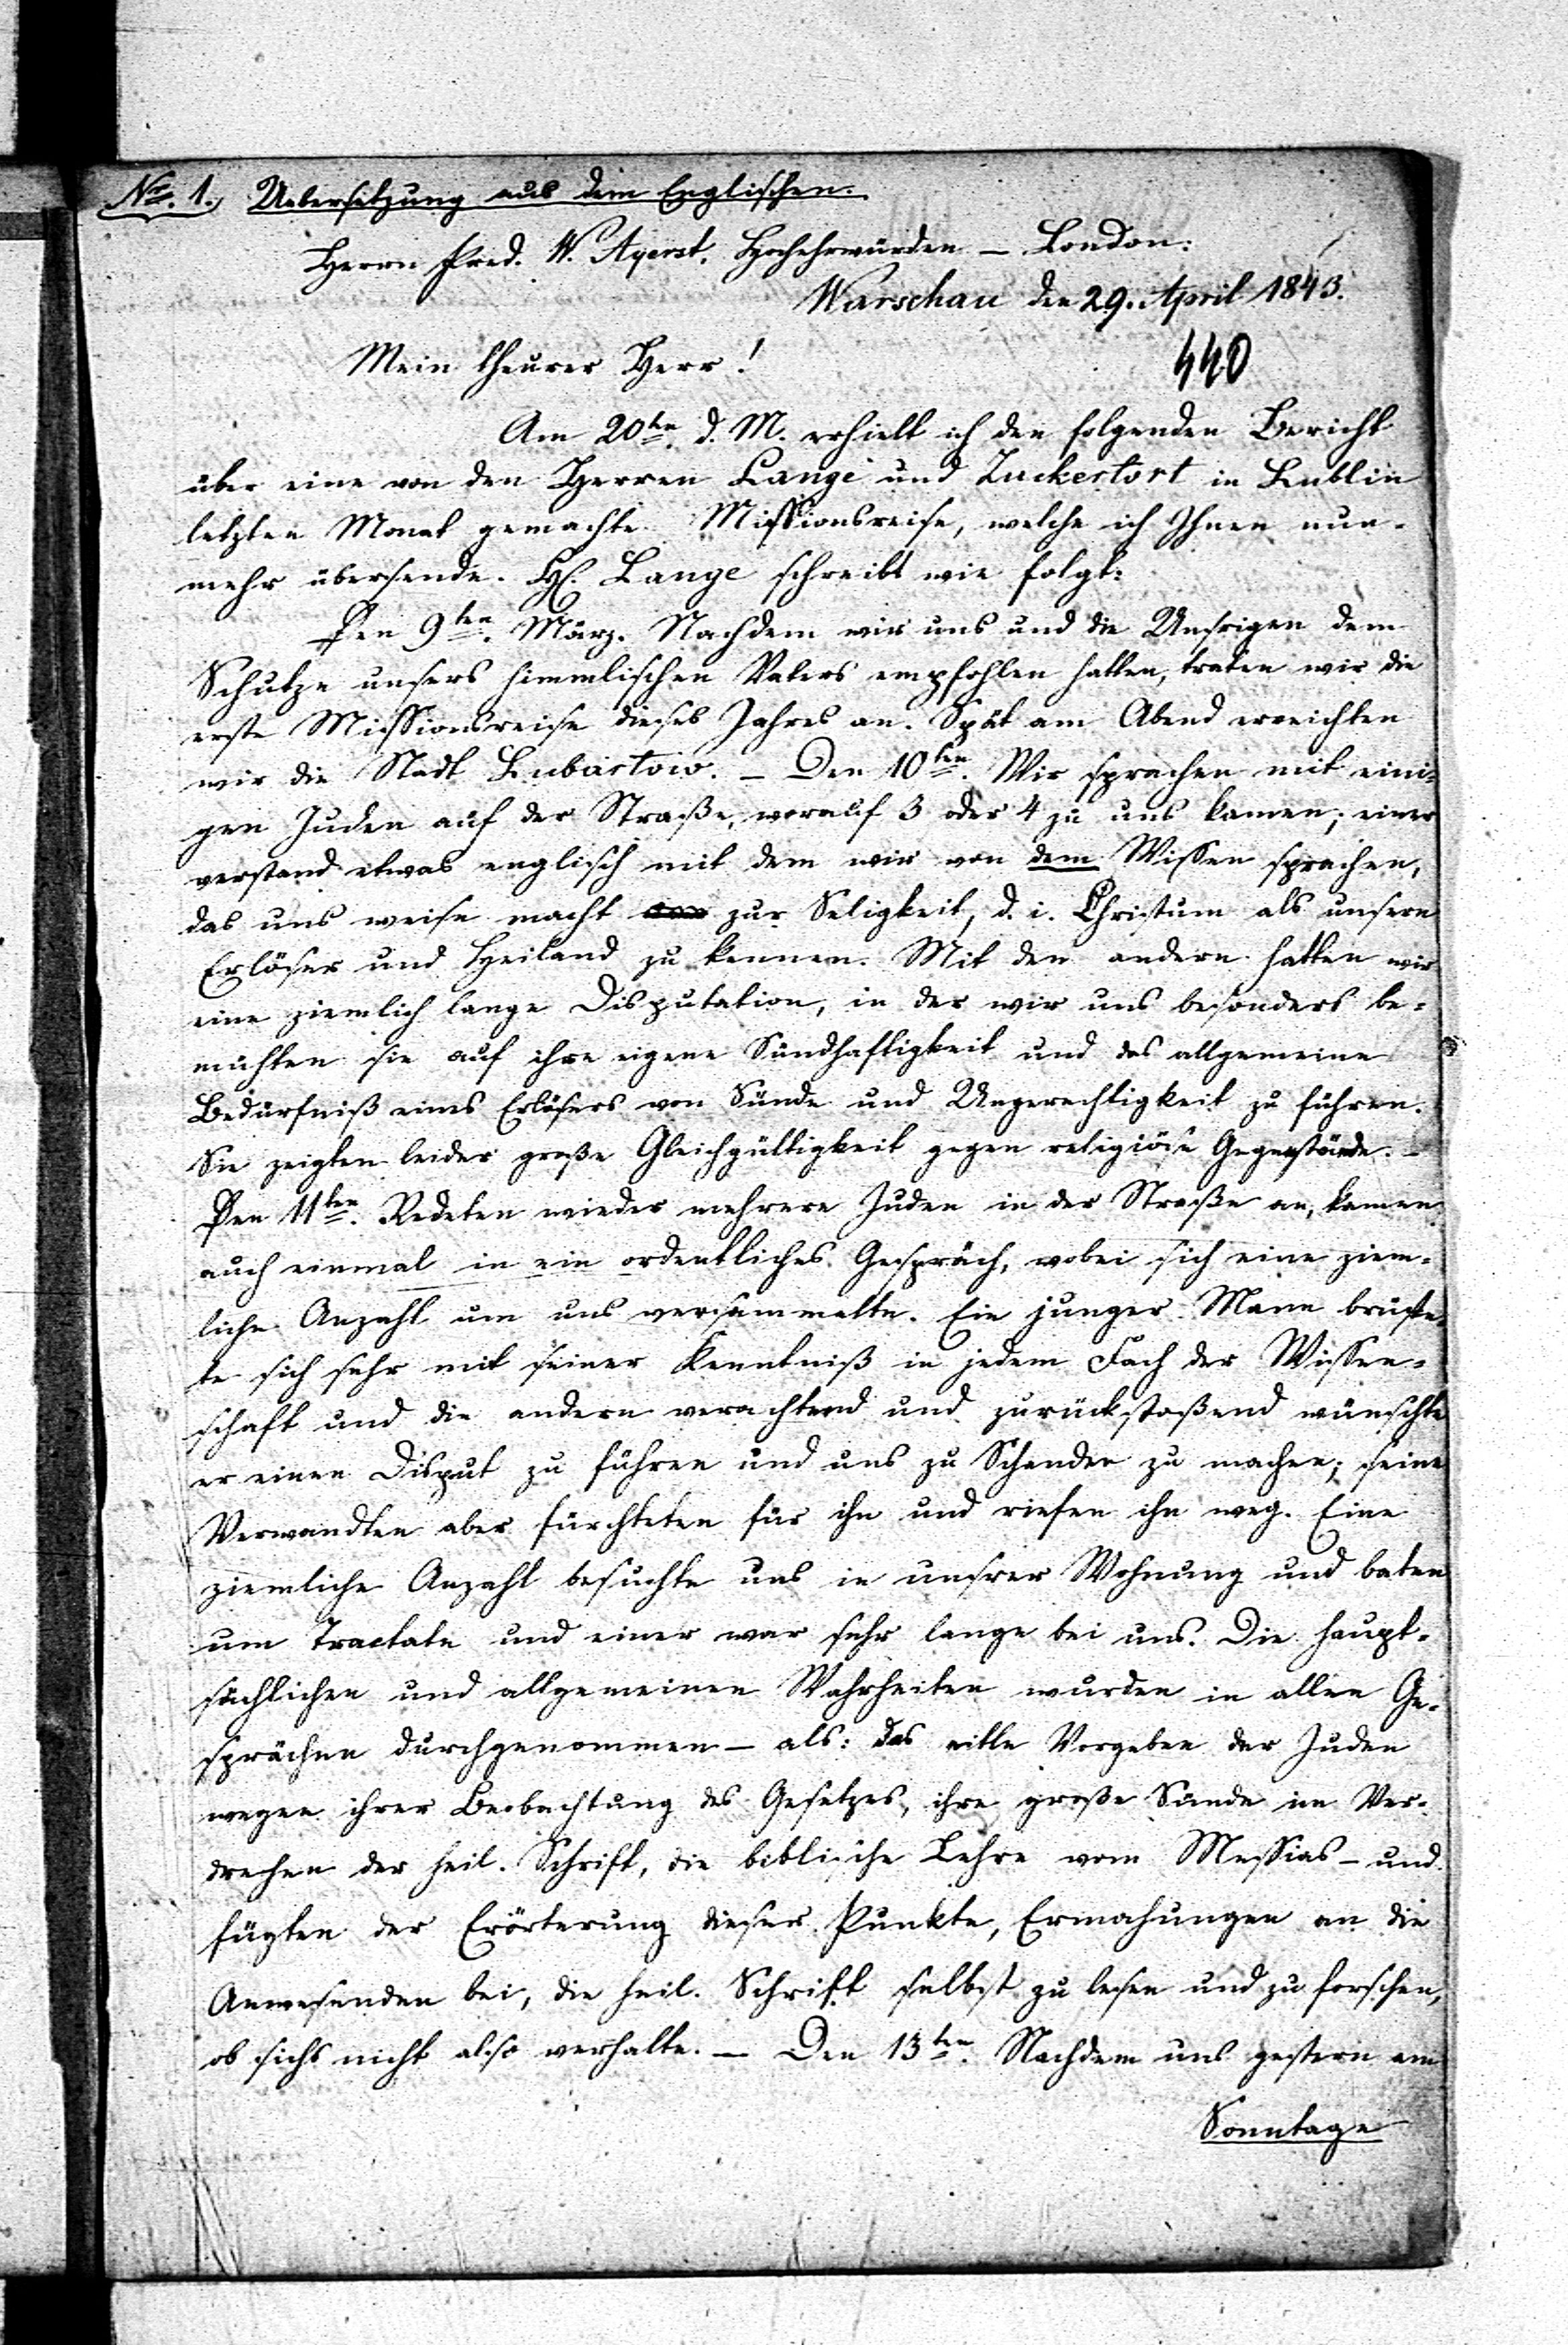 No. 1. Uebersetzung aus dem Englischen.
Herrn Pred. W. Ayerst. Hochehrwürden – London:
Warschau den 29. April 1843.
Mein theurer Herr!
440
Am 20ten. d. M. erhielt ich den folgenden Bericht
über eine von den Herren Lange und Zuckertort in Lublin
letzten Monat gemachte Missionsreise, welche ich Ihnen nun-
mehr übersende. H. Lange schreibt wie folgt:
Den 9ten. März. Nachdem wir uns und die Unsrigen dem
Schutze unsers himmlischen Vaters empfohlen hatten, traten wir die
erste Missionsreise dieses Jahres an. Spät am Abend erreichten
wir die Stadt Lubartow. – Den 10ten. Wir sprachen mit eini-
gen Juden auf der Straße, worauf 3 oder 4 zu uns kamen; einer
verstand etwas englisch mit dem wir von dem Wissen sprachen,
das uns weise macht zur Seligkeit, d. i. Christum als unsern
Erlöser und Heiland zu kennen. Mit den andern hatten wir
eine ziemlich lange Disputation, in der wir uns besonders be-
mühten sie auf ihre eigene Sündhaftigkeit und das allgemeine
Bedürfniß eines Erlösers von Sünde und Ungerechtigkeit zu führen.
Sie zeigten leider große Gleichgültigkeit gegen religiöse Gegenstände. –
Den 11ten. Redeten wieder mehrere Juden in der Straße an, kamen
auch einmal in ein ordentliches Gespräch, wobei sich eine ziem-
liche Anzahl um uns versammelte. Ein junger Mann brüste-
te sich sehr mit seiner Kenntniß in jedem Fach der Wissen-
schaft und die andern verachtend und zurückstoßend wünschte
er einen Disput zu führen und uns zu Schanden zu machen; seine
Verwandten aber fürchteten für ihn und riefen ihn weg. Eine
ziemliche Anzahl besuchte uns in unsrer Wohnung und baten
um Tractate und einer war sehr lange bei uns. Die haupt-
sächlichen und allgemeinen Wahrheiten wurden in allen Ge-
sprächen durchgenommen – als: das eitle Vorgeben der Juden
wegen ihrer Beobachtung des Gesetzes, ihre große Sünde im Ver-
drehen der heil. Schrift, die biblische Lehre vom Messias – und
fügten der Erörterung dieser Punkte, Ermahungen an die
Anwesenden bei, die heil. Schrift selbst zu lesen und zu forschen,
ob sichs nicht also verhalte. – Den 13ten. Nachdem uns gestern am
Sonntage